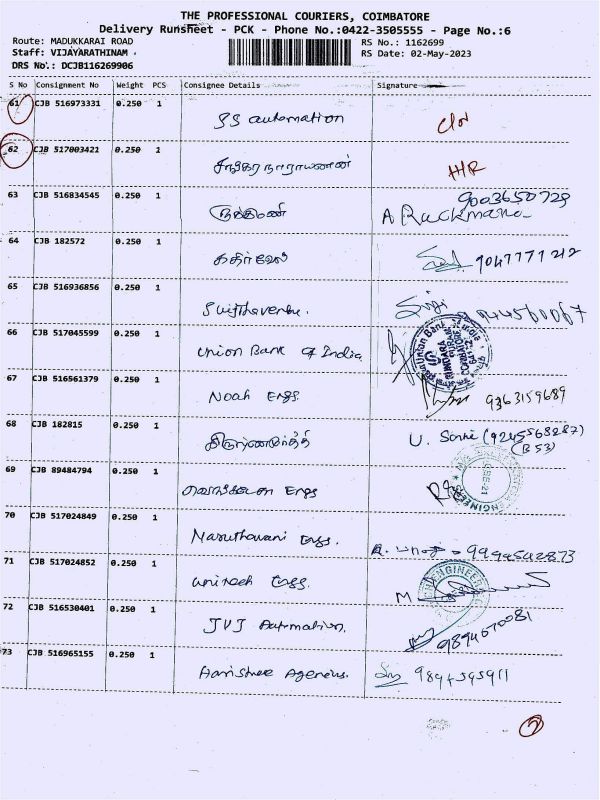 THE PROFESSIONAL COURIERS, COIMBATORE
Delivery Runsheet - PCK - Phone No.:0422-3505555 - Page No.:6
Route: MADUKKARAI ROAD RS No.: 1162699
Staff: VIJAYARATHINAM RS Date: 02-May-2023
DRS No.: DCJB116269906
S No Consignment No Weight PCS Consignee Details Signature
61 CJB 516973331 0.250 1
SS automation
62 CJB 517003421 0.250 1
சங்கரநாராயணன்
63 CJB 516834545 0.250 1 9003650729
A
64 CJB 182572 0.250 1
கதிர்வேல் 9047771212
65 CJB 516936856 0.250 1
66 CJB 517045599 0.250 1
Union Bank of India
67 CJB 516561379 0.250 1
Noah Engs 9363159689
68 CJB 182815 0.250 1
U. (9245568287)
(B53)
69 CJB 89484794 0.250 1
Engs
70 CJB 517024849 0.250 1
Maruthavani Engs. 9994542873
71 CJB 517024852 0.250 1
Unitech Engs. M
72 CJB 516530401 0.250 1
JVJ Automation. 9894670081
73 CJB 516965155 0.250 1
Harishree Agencies. 9894395911